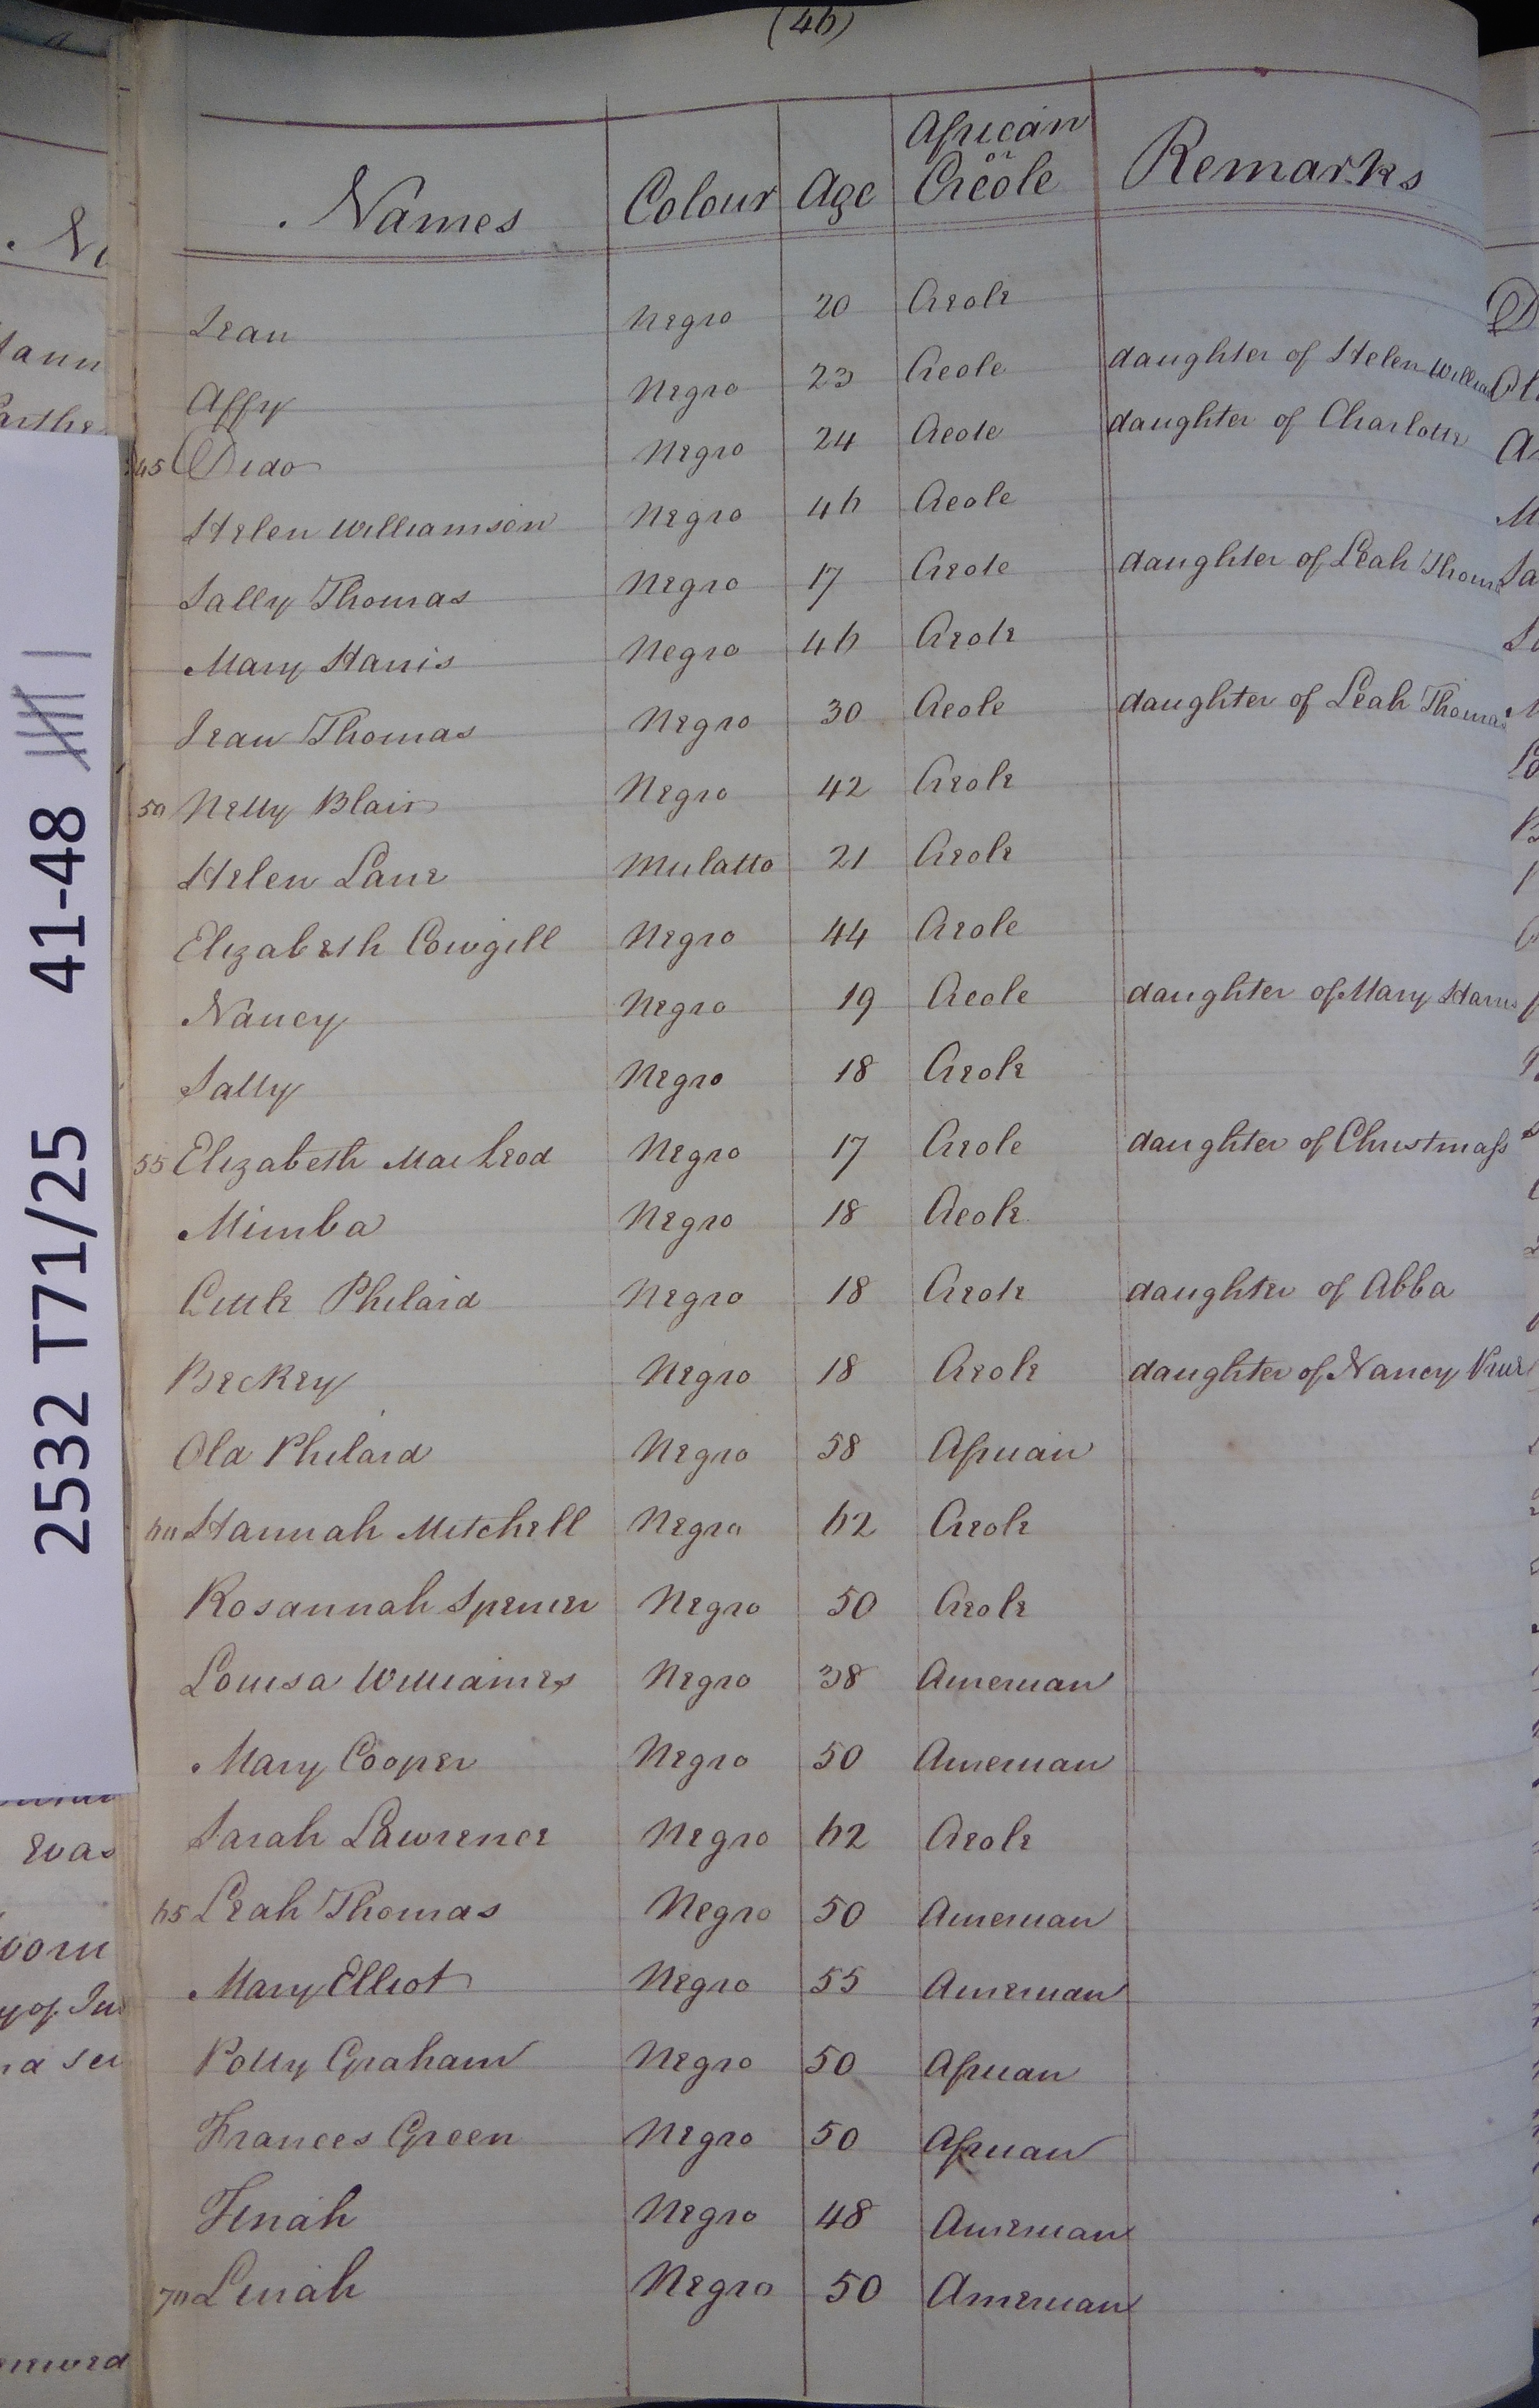 (46)
Names Colour Age African or Creole Remarks
Jean Negro 20 Creole
Affy Negro 23 Creole daughter of Helen William
45 Dido Negro 24 Creole daughter of Charlotte
Helen Williamson Negro 46 Creole
Sally Thomas Negro 17 Creole daughter of Leah Thomas
Mary Harris Negro 46 Creole
Jean Thomas Negro 30 Creole daughter of Leah Thomas
50 Nelly Blair Negro 42 Creole
Helen Lane Mulatto 21 Creole
Elizabeth Cowgill Negro 44 Creole
Nancy Negro 19 Creole daughter of Mary Harris
Sally Negro 18 Creole
55 Elizabeth MacLeod Negro 17 Creole daughter of Christmass
Mimba Negro 18 Creole
Little Philard Negro 18 Creole daughter of Abba
Beckey Negro 18 Creole daughter of Nancy
Old Philard Negro 58 African
60 Hannah Mitchell Negro 62 Creole
Rosannah Spencer Negro 50 Creole
Louisa Williames Negro 38 American
Mary Cooper Negro 50 American
Sarah Lawrence Negro 62 Creole
65 Leah Thomas Negro 50 American
Mary Elliot Negro 55 American
Polly Graham Negro 50 African
Frances Green Negro 50 African
Tinah Negro 48 American
70 Linah Negro 50 American
2532 T71/25 41-48